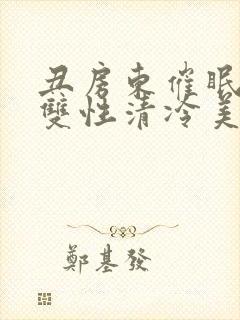 丑房東催眠
雙性清冷美
鄭基發